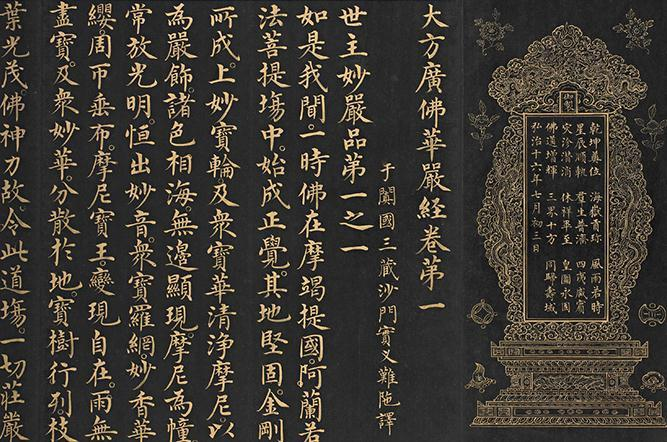 御製
乾坤奠位 海嶽貢珎 風雨若時
星辰順軌 羣生普濟 四夷咸賓
災沴潛消 休祥畢至 皇圖永固
佛道增輝 三界十方 同歸壽域
弘治十六年七月初二日
大方廣佛華嚴經卷第一
于闐國三藏沙門實叉難陁譯
世主妙嚴品第一之一
如是我聞。一時佛在摩竭提國。阿蘭若
法菩提場中。始成正覺。其地堅固。金剛
所成。上妙寶輪。及衆寶華。清淨摩尼。以
為嚴飾。諸色相海。無邊顯現。摩尼為幢。
常放光明。恒出妙音。衆寶羅網。妙香華
纓。周帀垂布。摩尼寶王。變現自在。雨無
盡寶。及衆妙華。分散於地。寶樹行列。枝
葉光茂。佛神力故。令此道場。一切莊嚴